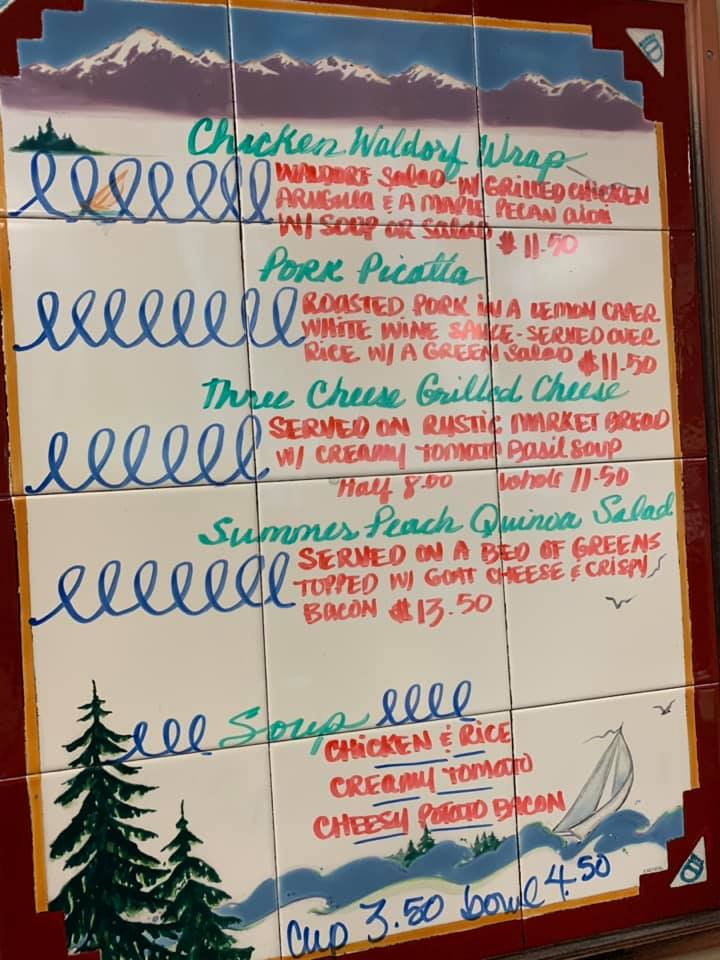 Chicken Waldorf Wrap
WALDORF SALAD - W/ GRILLED CHICKEN
ARUGULA & A MAPLE PECAN AIOLI
W/ SOUP OR SALAD $11.50
PORK Picatta
ROASTED PORK IN A LEMON CAPER
WHITE WINE SAUCE - SERVED OVER
RICE W/ A GREEN SALAD $11.50
Three Cheese Grilled Cheese
SERVED ON RUSTIC MARKET BREAD
W/ CREAMY TOMATO Basil SOUP
Half 8.00 whole 11.50
Summer Peach Quinoa Salad
SERVED ON A BED OF GREENS
TOPPED W/ GOAT CHEESE & CRISPY
BACON $13.50
Soup
CHICKEN & RICE
CREAMY TOMATO
CHEESY POTATO BACON
Cup 3.50 bowl 4.50